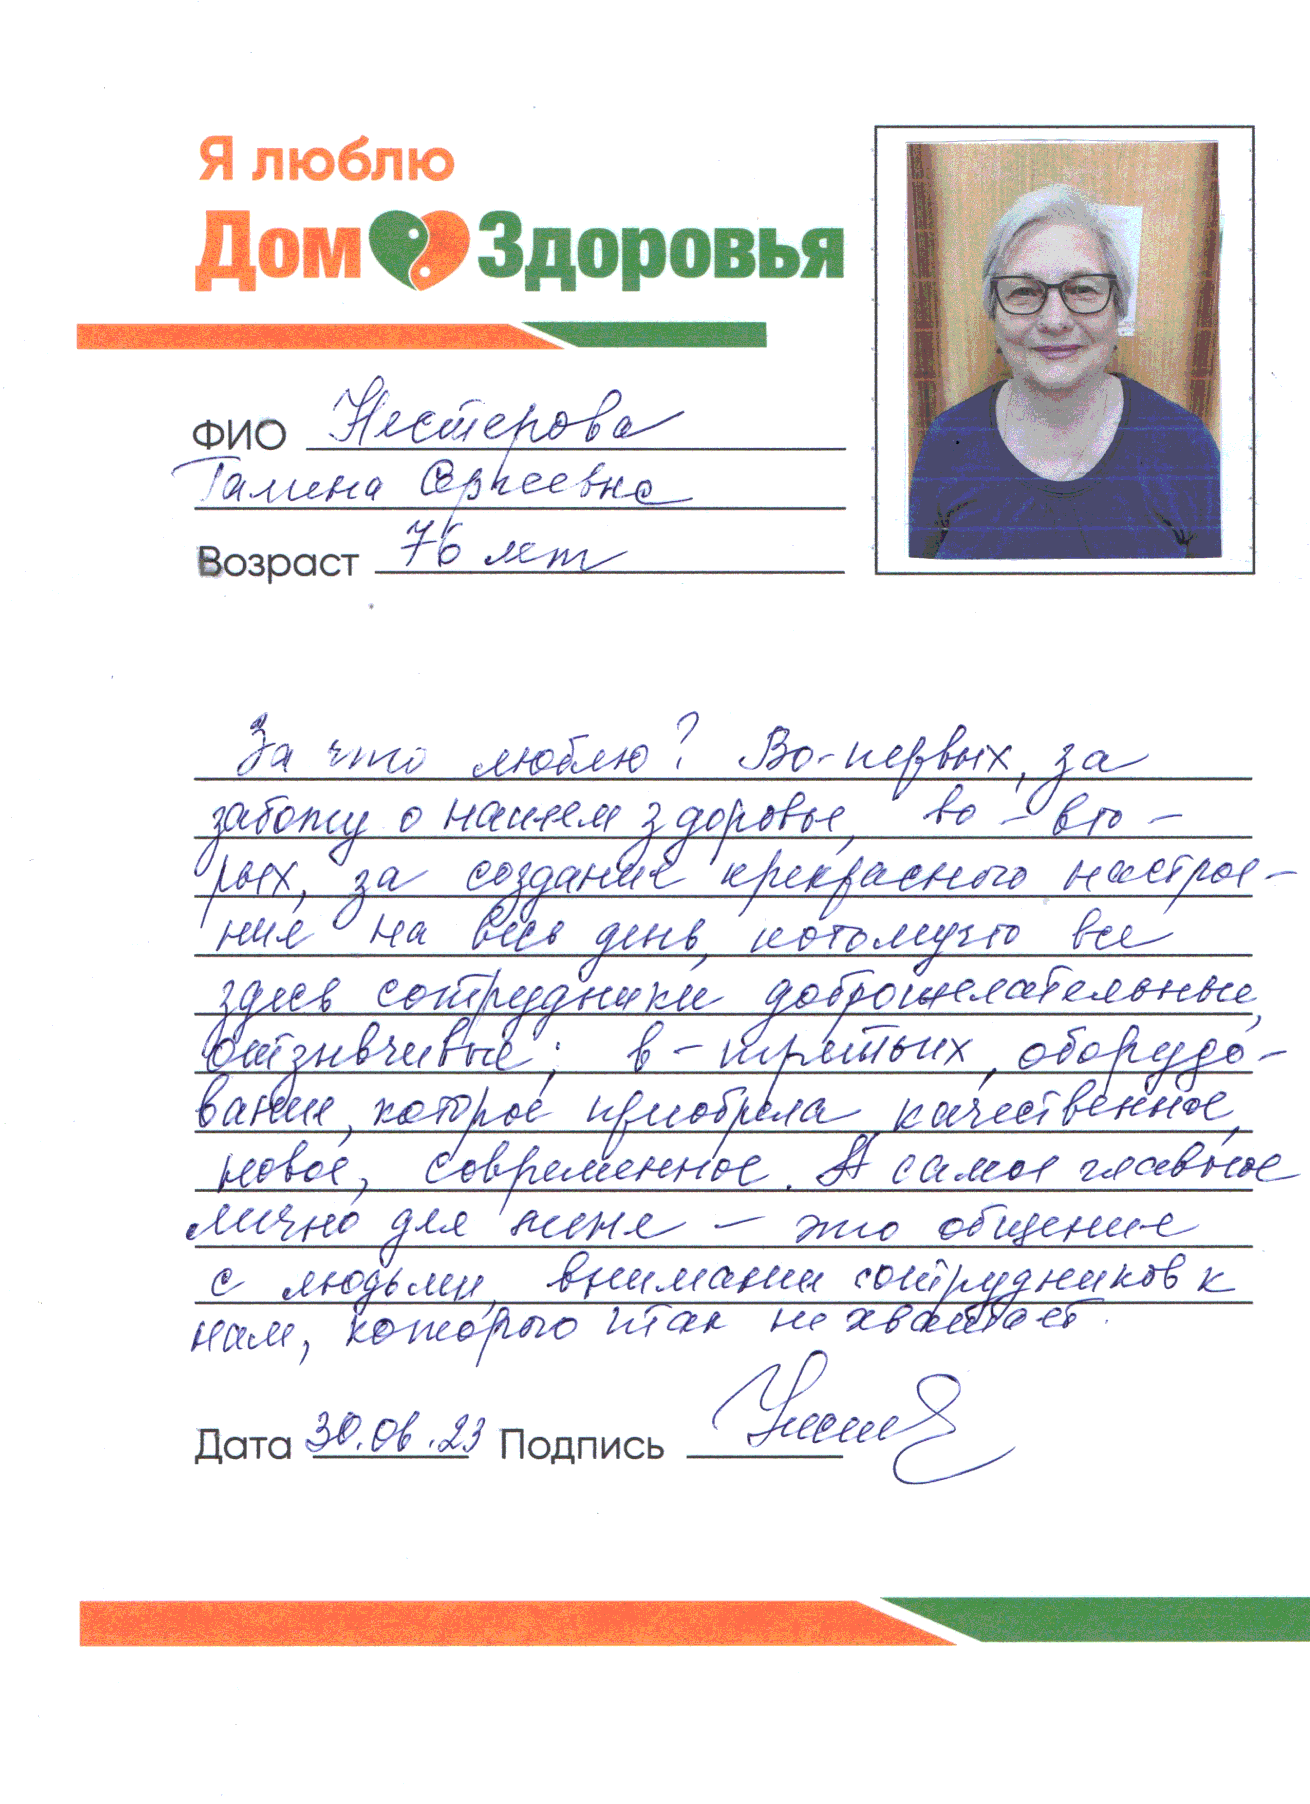 Я люблю
Дом Здоровья
ФИО Нестерова
Галина Сергеевна
Возраст 76 лет
За что люблю? Во-первых, за
заботу о нашем здоровье, во-вто-
рых, за создание прекрасного настрое-
ния на весь день, потомучто все
здесь сотрудники доброжелательные,
отзывчивые; в-третьих, оборудо-
вание, которое приобрела качественное,
новое, современное. А самое главное
лично для меня - это общение
с людьми, внимания сотрудников к
нам, которого так не хватает.
Дата 30.06.23 Подпись